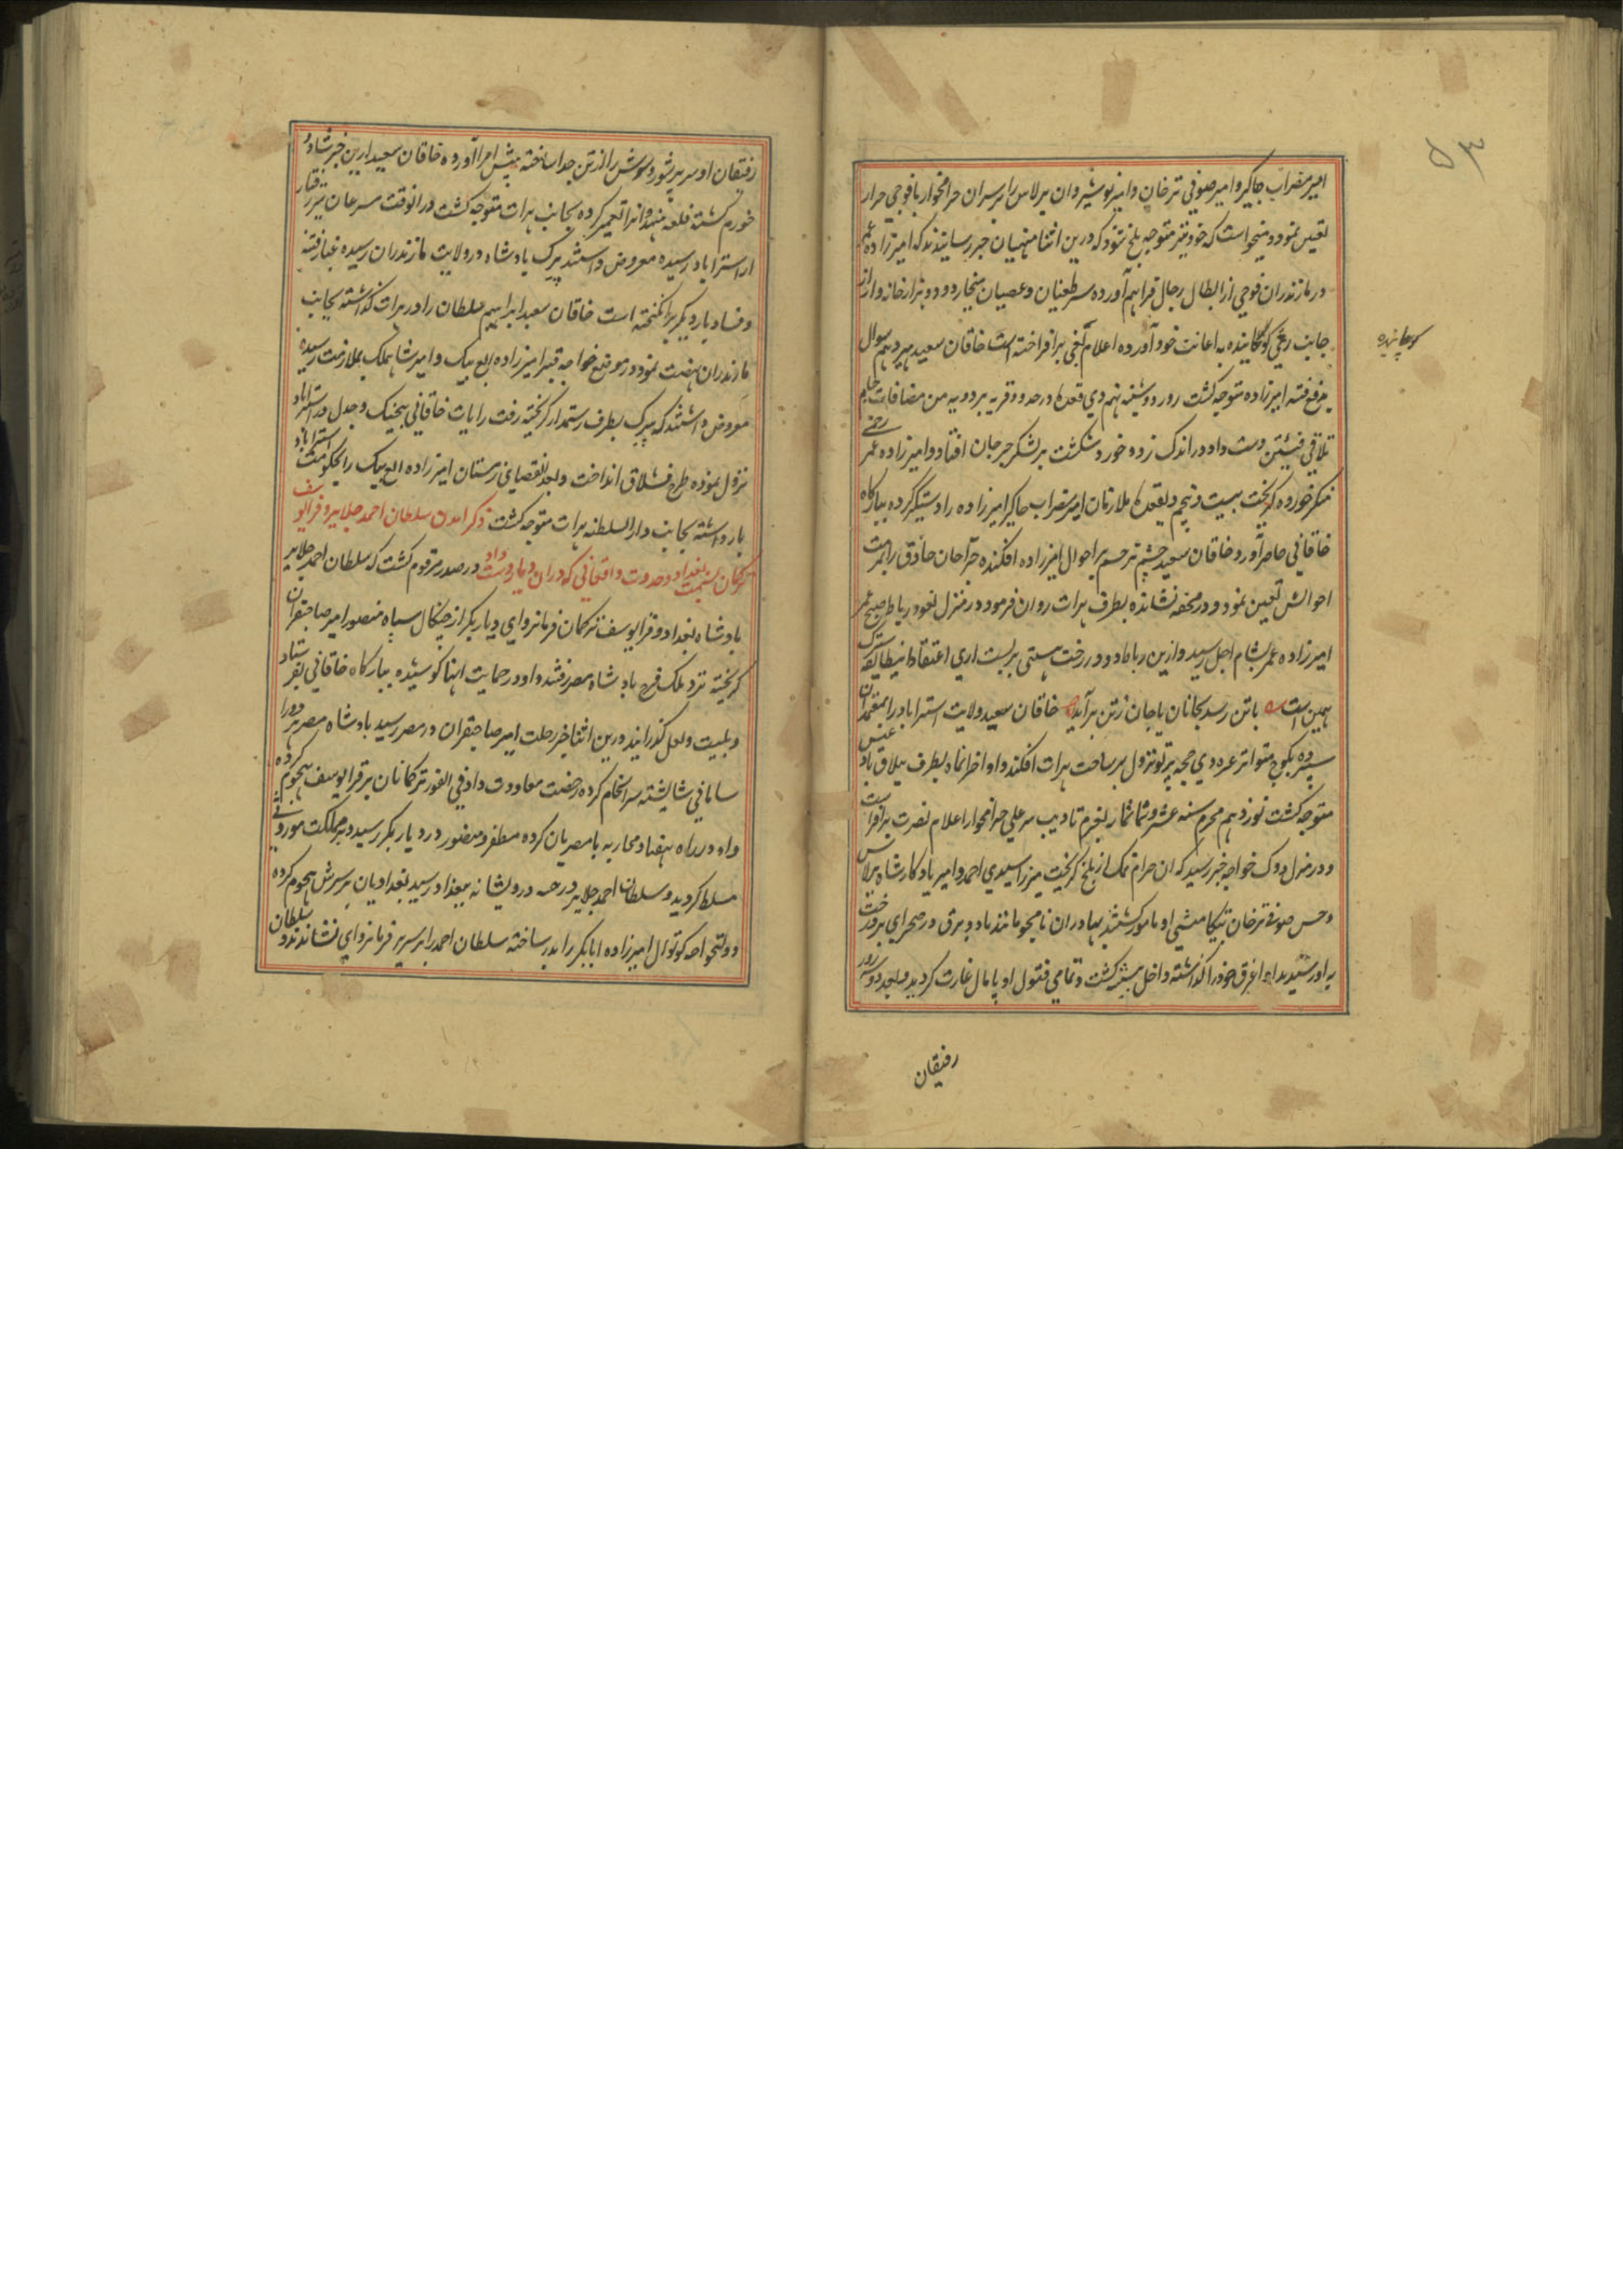 ۵۳
امیر مضراب جاکیر و امیر صوفی ترخان و امیر نوشیروان برلاس را بر سر آن حرامخوار با فوجی جرار
تعیین نمود و میخواست که خود نیز متوجه بلخ شود که درین اثنا منهیان خبر رسانیدند که امیرزاده عمر
در مازندران فوجی از ابطال رجال فراهم آورده سر طغیان و عصیان میخارد و دو هزار خانه وار از
جانب ری کوچانیده به اعانت خود آورده اعلام بغی برافراخته است خاقان سعید سیزدهم شوال
کوچانیده
بدفع فتنه امیرزاده متوجه کشت روز دوشنبه نهم ذی قعده در حدود قریه بردویه من مضافات جام
تلاقی فئتین دست داد در اندک زد و خورد شکست بر لشکر جرجان افتاد و امیرزاده عمر زخمی
منکر خورده کریخت بیست و پنجم ذیقعده ملازمان امیر مضراب جاکیر امیرزاده را دستیکیر کرده ببارکاه
خاقانی حاضر آورد و خاقان سعید چشم ترحم بر احوال امیرزاده افکنده جراحان حاذق را بمرمت
احوالش تعیین نمود و در محفه نشانده بطرف هرات روان فرمود در منزل نعوذ رباط صبح عمر
امیرزاده عمر بشام اجل رسید و ازین رباط دو در رخت هستی بر بست آری اعتقاد اینطایفه
همین است یا تن رسد بجانان یا جان ز تن برآید خاقان سعید ولایت استراباد را بمعتمدان
سپرده بکوچ متواتر غره ذی حجه پرتو نزول بر ساحت هرات افکند و اواخر انماه بطرف ییلاق بادغیس
متوجه کشت نوزدهم محرم سنه عشر و ثمانمائه بعزم تادیب میر علی حرامخوار اعلام نصرت برافراشت
و در منزل دوک خواجه خبر رسید که ان حرام نمک از بلخ کریخت میرزا سیدی احمد و امیر یادکار شاه برلاس
و حسن صوفی ترخان بتکامشی او مامور کشتند بهادران نامجو مانند باد و برق در صحرای بردخت
به او رسیدند او اغرق خود را کذاشته داخل بیشه کشت و تمامی فتول او پامال غارت کردید و بعد دو سه روز
رفیقان
رفیقان او سر پر شور و شوش را از تن جدا ساخته پیش امرا آورده خاقان سعید ازین خبر شاد و
خورم کشته قلعه هندوانرا تعمیر کرده بجانب هرات متوجه کشت در انوقت مسرعان تیز رفتار
از استراباد رسیده معروض داشتند پیرک پادشاه در ولایت مازندران رسیده غبار فتنه
و فساد بار دیکر برانکیخته است خاقان سعید ابراهیم سلطان را در هرات کذاشته بجانب
مازندران نهضت نمود در موضع خواجه قنبر امیرزاده الغ بیک و امیر شاهملک بملازمت رسیده
معروض داشتند که پیرک بطرف رستمدار کریخته رفت رایات خاقانی بیجنک و جدل در استراباد
نزول نموده طرح قشلاق انداخت و بعد انقضای زمستان امیرزاده الغ بیک را بحکومت استراباد
بازداشته بجانب دارالسلطنه هرات متوجه کشت ذکر آمدن سلطان احمد جلایر و قرا یوسف
ترکمان بسمت بغداد و حدوث واقعاتی که دران دیار دست داد در صدر مرقوم کشت که سلطان احمد جلایر
پادشاه بغداد و قرا یوسف ترکمان فرمانروای دیار بکر از چنکال سپاه منصور امیر صاحبقران
کریخته نزد ملک فرج پادشاه مصر رفتند و او در حمایت اینها کوشیده ببارکاه خاقانی نفرستاد
و بلیت و لعل کذرانید درین اثنا خبر رحلت امیر صاحبقران در مصر رسید پادشاه مصر هر دو را
سامانی شایسته سرانجام کرده رخصت معاودت داد فی الفور ترکمانان بر قرا یوسف هجوم کرده
و او در راه هفتاد محاربه با مصریان کرده مظفر و منصور در دیار بکر رسید و بر مملکت موروثی
مسلط کردید و سلطان احمد جلایر در حله درویشانه ببغداد رسید بغدادیان بر سرش هجوم کرده
دولتخواجه کوتوال امیرزاده ابابکر را بدر ساخته سلطان احمد را بر سریر فرمانروای نشاندند و سلطان